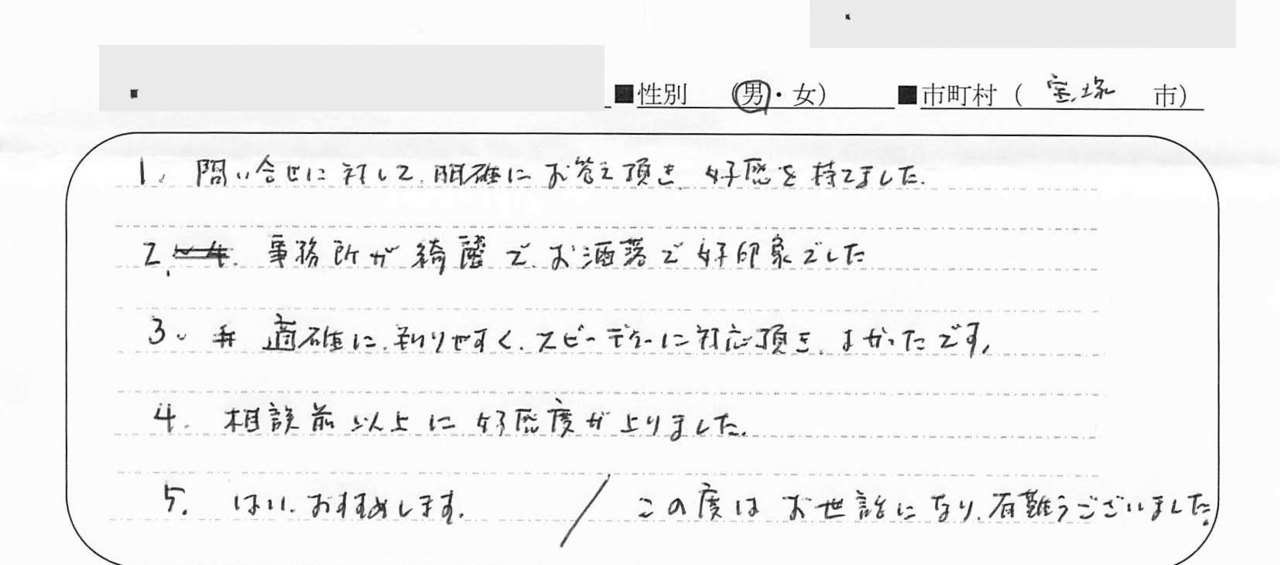 ■性別 (男・女) ■市町村 ( 宝塚 市)
1. 問い合せに対して、明確にお答え頂き、好感を持てました。
2. 事務所が綺麗で、お洒落で好印象でした
3. 適確に、判りやすく、スピーディーに対応頂き、よかったです。
4. 相談前以上に好感度が上りました。
5. はい、おすすめします。 / この度はお世話になり、有難うございました。